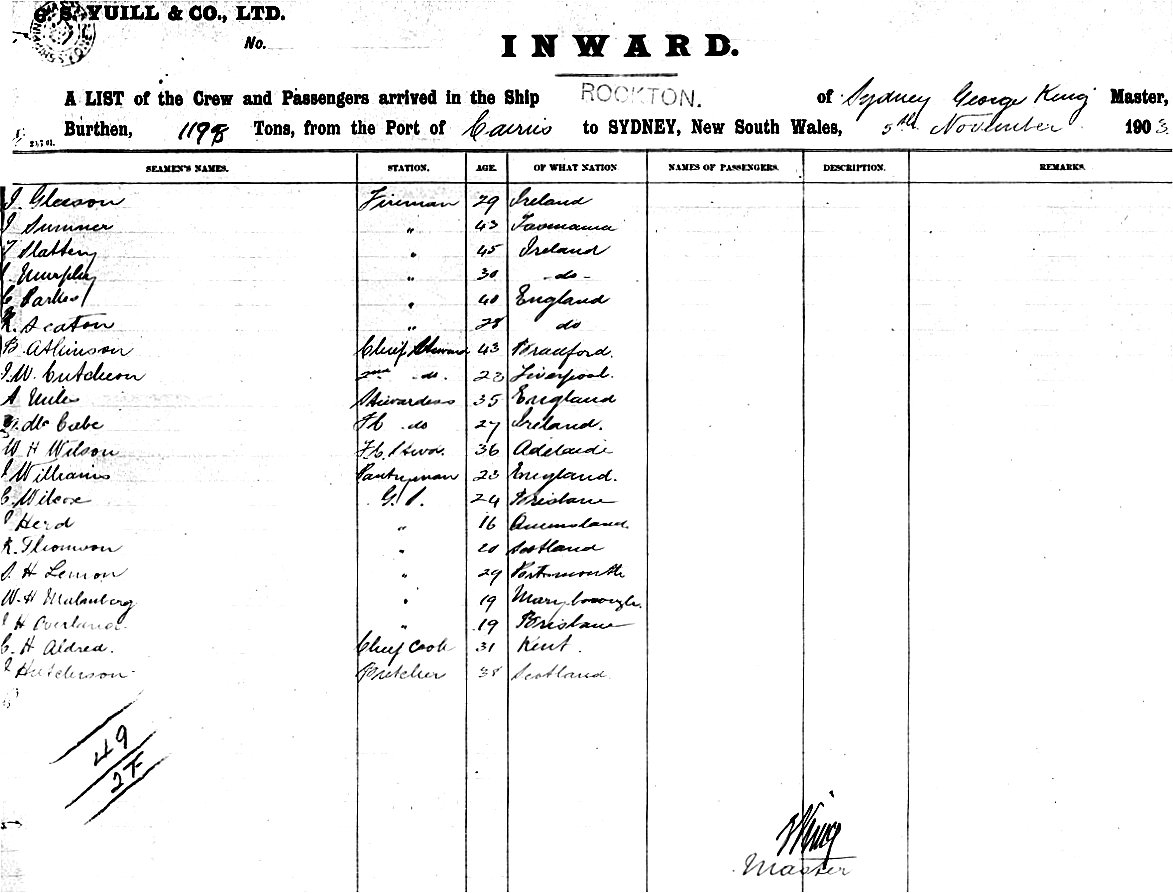 G. S. YUILL & CO., LTD.
No.
INWARD.
A LIST of the Crew and Passengers arrived in the Ship ROCKTON. of Sydney George King Master,
Burthen, 1198 Tons, from the Port of Cairns to SYDNEY, New South Wales, 5th November 1903
SEAMEN'S NAMES. STATION. AGE. OF WHAT NATION NAMES OF PASSENGERS. DESCRIPTION. REMARKS.
Gleeson Fireman 29 Ireland
Sumner " 43 Tasmania
Slattery " 45 Ireland
Murphy " 30 -do-
C Parkes " 40 England
R. Seaton " 28 do
B. Atkinson Chief Steward 43 Bradford.
W. Cutcheon 2nd do. 23 Liverpool.
A Stewardess 35 England
McCabe do 27 Ireland.
W H Wilson F.C. Stwd. 36 Adelaide
Williams Pantryman 23 England.
C. Wilcox G.S. 24 Brisbane
Herd " 16 Queensland
R. Thomson " 20 Scotland
H Lemon " 29 Portsmouth
W. H Malmberg " 19 Maryborough.
H Overland " 19 Brisbane
C. H Aldred. Chief Cook 31 Kent.
Hutcherson Butcher 38 Scotland
49
27
King
Master